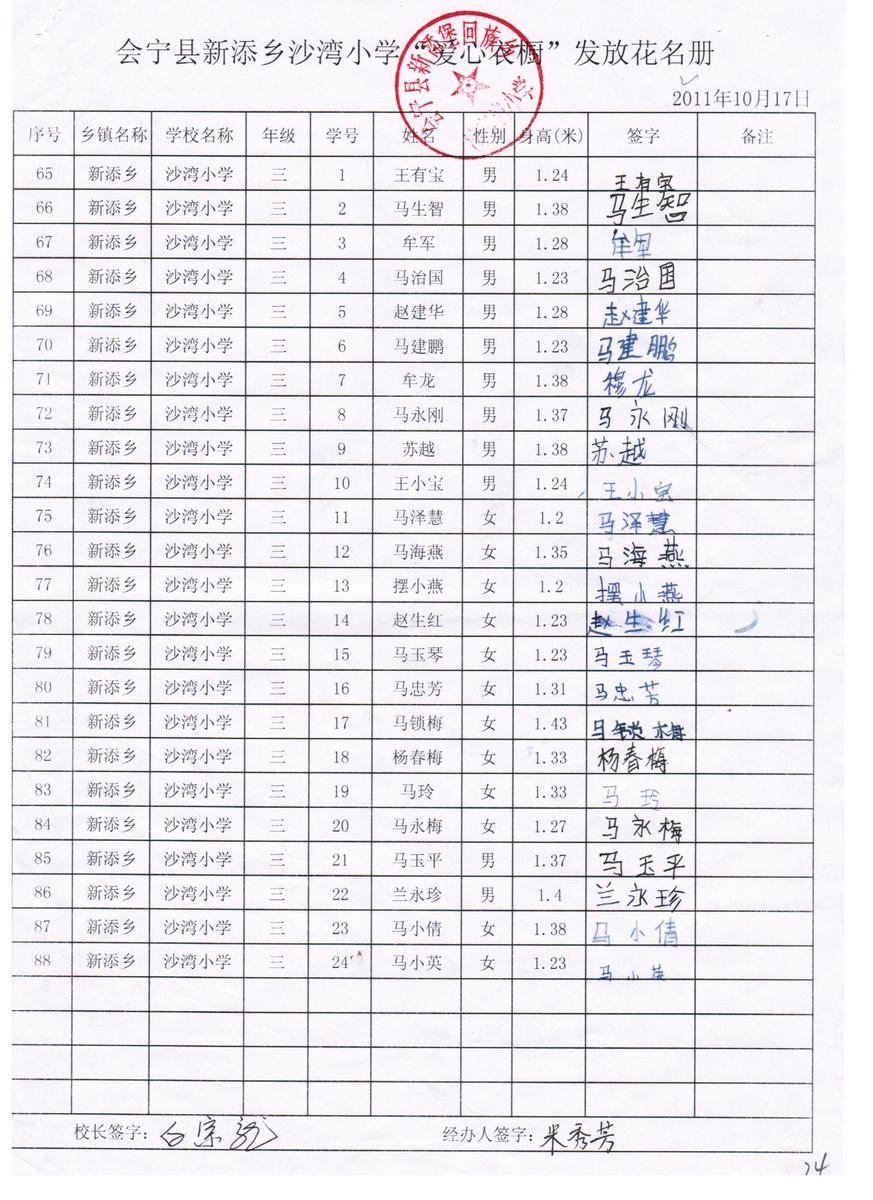 会宁县新添乡沙湾小学“爱心衣橱”发放花名册
2011年10月17日
序号 乡镇名称 学校名称 年级 学号 姓名 性别 身高(米) 签字 备注
65 新添乡 沙湾小学 三 1 王有宝 男 1.24 王有宝
66 新添乡 沙湾小学 三 2 马生智 男 1.38 马生智
67 新添乡 沙湾小学 三 3 牟军 男 1.28 牟军
68 新添乡 沙湾小学 三 4 马治国 男 1.23 马治国
69 新添乡 沙湾小学 三 5 赵建华 男 1.28 赵建华
70 新添乡 沙湾小学 三 6 马建鹏 男 1.23 马建鹏
71 新添乡 沙湾小学 三 7 牟龙 男 1.38 穆龙
72 新添乡 沙湾小学 三 8 马永刚 男 1.37 马永刚
73 新添乡 沙湾小学 三 9 苏越 男 1.38 苏越
74 新添乡 沙湾小学 三 10 王小宝 男 1.24 王小宝
75 新添乡 沙湾小学 三 11 马泽慧 女 1.2 马泽慧
76 新添乡 沙湾小学 三 12 马海燕 女 1.35 马海燕
77 新添乡 沙湾小学 三 13 摆小燕 女 1.2 摆小燕
78 新添乡 沙湾小学 三 14 赵生红 女 1.23 赵生红
79 新添乡 沙湾小学 三 15 马玉琴 女 1.23 马玉琴
80 新添乡 沙湾小学 三 16 马忠芳 女 1.31 马忠芳
81 新添乡 沙湾小学 三 17 马锁梅 女 1.43 马锁梅
82 新添乡 沙湾小学 三 18 杨春梅 女 1.33 杨春梅
83 新添乡 沙湾小学 三 19 马玲 女 1.33 马玲
84 新添乡 沙湾小学 三 20 马永梅 女 1.27 马永梅
85 新添乡 沙湾小学 三 21 马玉平 男 1.37 马玉平
86 新添乡 沙湾小学 三 22 兰永珍 男 1.4 兰永珍
87 新添乡 沙湾小学 三 23 马小倩 女 1.38 马小倩
88 新添乡 沙湾小学 三 24 马小英 女 1.23 马小英
校长签字： 经办人签字：米秀芳
24